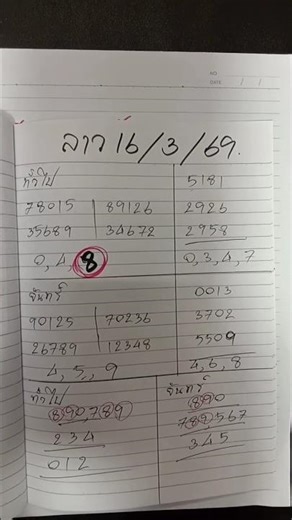 NO
DATE / /
ลาว 16/3/69.
ทั่วไป
78015 | 89126
35689 | 34672
0, 4, 8
5181
2926
2958
0, 3, 4, 7
จันทร์
90125 | 70236
26789 | 12348
4, 5, 9
0013
3702
5509
4, 6, 8
ทั่วไป
890,789
234
012
จันทร์
890
789,567
345